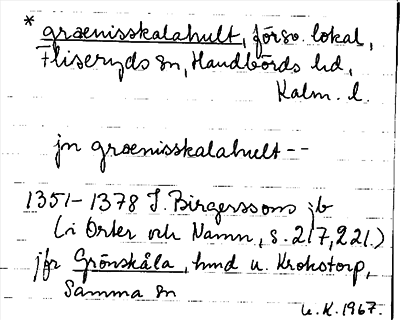 * grœnisskalahult, försv. lokal,
Fliseryds sn, Handbörds hd,
Kalm. l.
jn grœnisskalahult--
1351-1378 S. Birgerssons jb
(i Orter och Namn, s. 217, 221.)
jfr Grönskåla, hmd u. Krokstorp,
Samma sn
U.K. 1967.